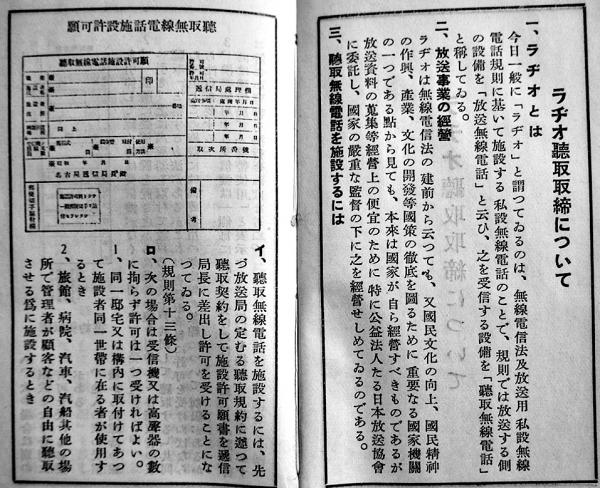 ラヂオ聽取取締について
一、ラヂオとは
今日一般に「ラヂオ」と謂つてゐるのは、無線電信法及放送用私設無線
電話規則に基いて施設する私設無線電話のことで、規則では放送する側
の設備を「放送無線電話」と云ひ、之を受信する設備を「聽取無線電話」
と稱してゐる。
二、放送事業の經營
ラヂオは無線電信法の建前から云つても、又國民文化の向上、國民精神
の作興、產業、文化の開發等國策の徹底を圖るために重要なる國家機關
の一つである點から見ても、本來は國家が自ら經營すべきものであるが
放送資料の蒐集等經營上の便宜のために特に公益法人たる日本放送協會
に委託し、國家の嚴重な監督の下に之を經營せしめてゐるのである。
三、聽取無線電話を施設するには
聽取無線電話施設許可願
聽取無線電話施設許可願
印
遞信局處理欄
年月日
年月日
年月日
取次所番號
同上
名古屋遞信局長殿
備考
イ、聽取無線電話を施設するには、先
づ放送局の定むる聽取規約に遵つて
聽取契約をして施設許可願書を遞信
局長に差出し許可を受けることにな
つてゐる。
（規則第十三條）
ロ、次の場合は受信機又は高聲器の數
に拘らず許可は一つ受ければよい。
1、同一邸宅又は構內に取付けてあつ
て施設者同一世帶に在る者が使用す
るとき
2、旅館、病院、汽車、汽船其他の場
所で管理者が顧客などの自由に聽取
させる爲に施設するとき